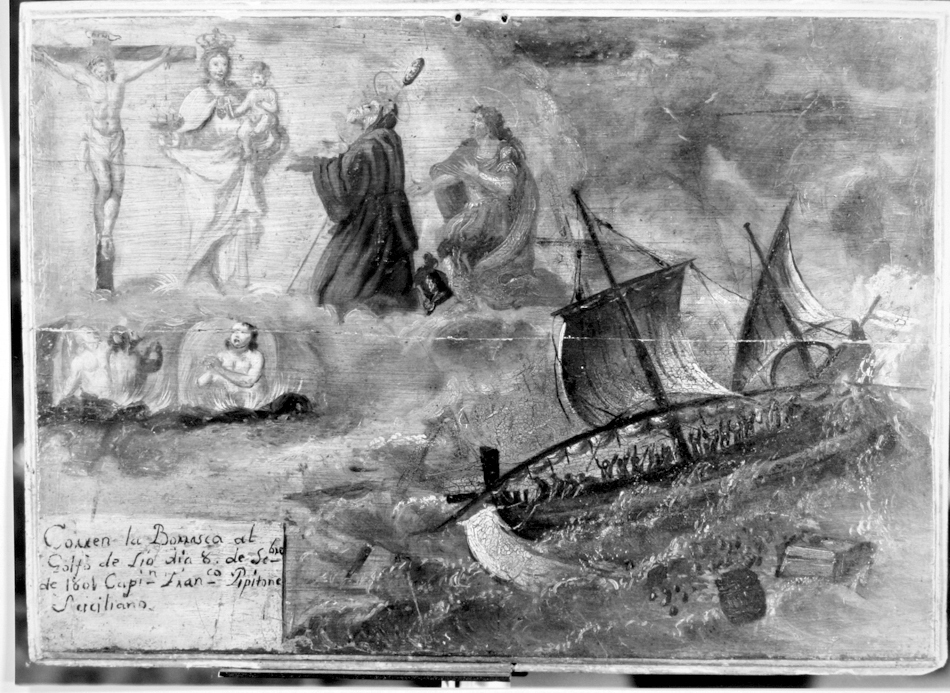 Corren la Borrasca al
Golfo de Lio dia 8. de Se-bre
de 1801 Capi-n Fran-co Pipitone
Siciliano.